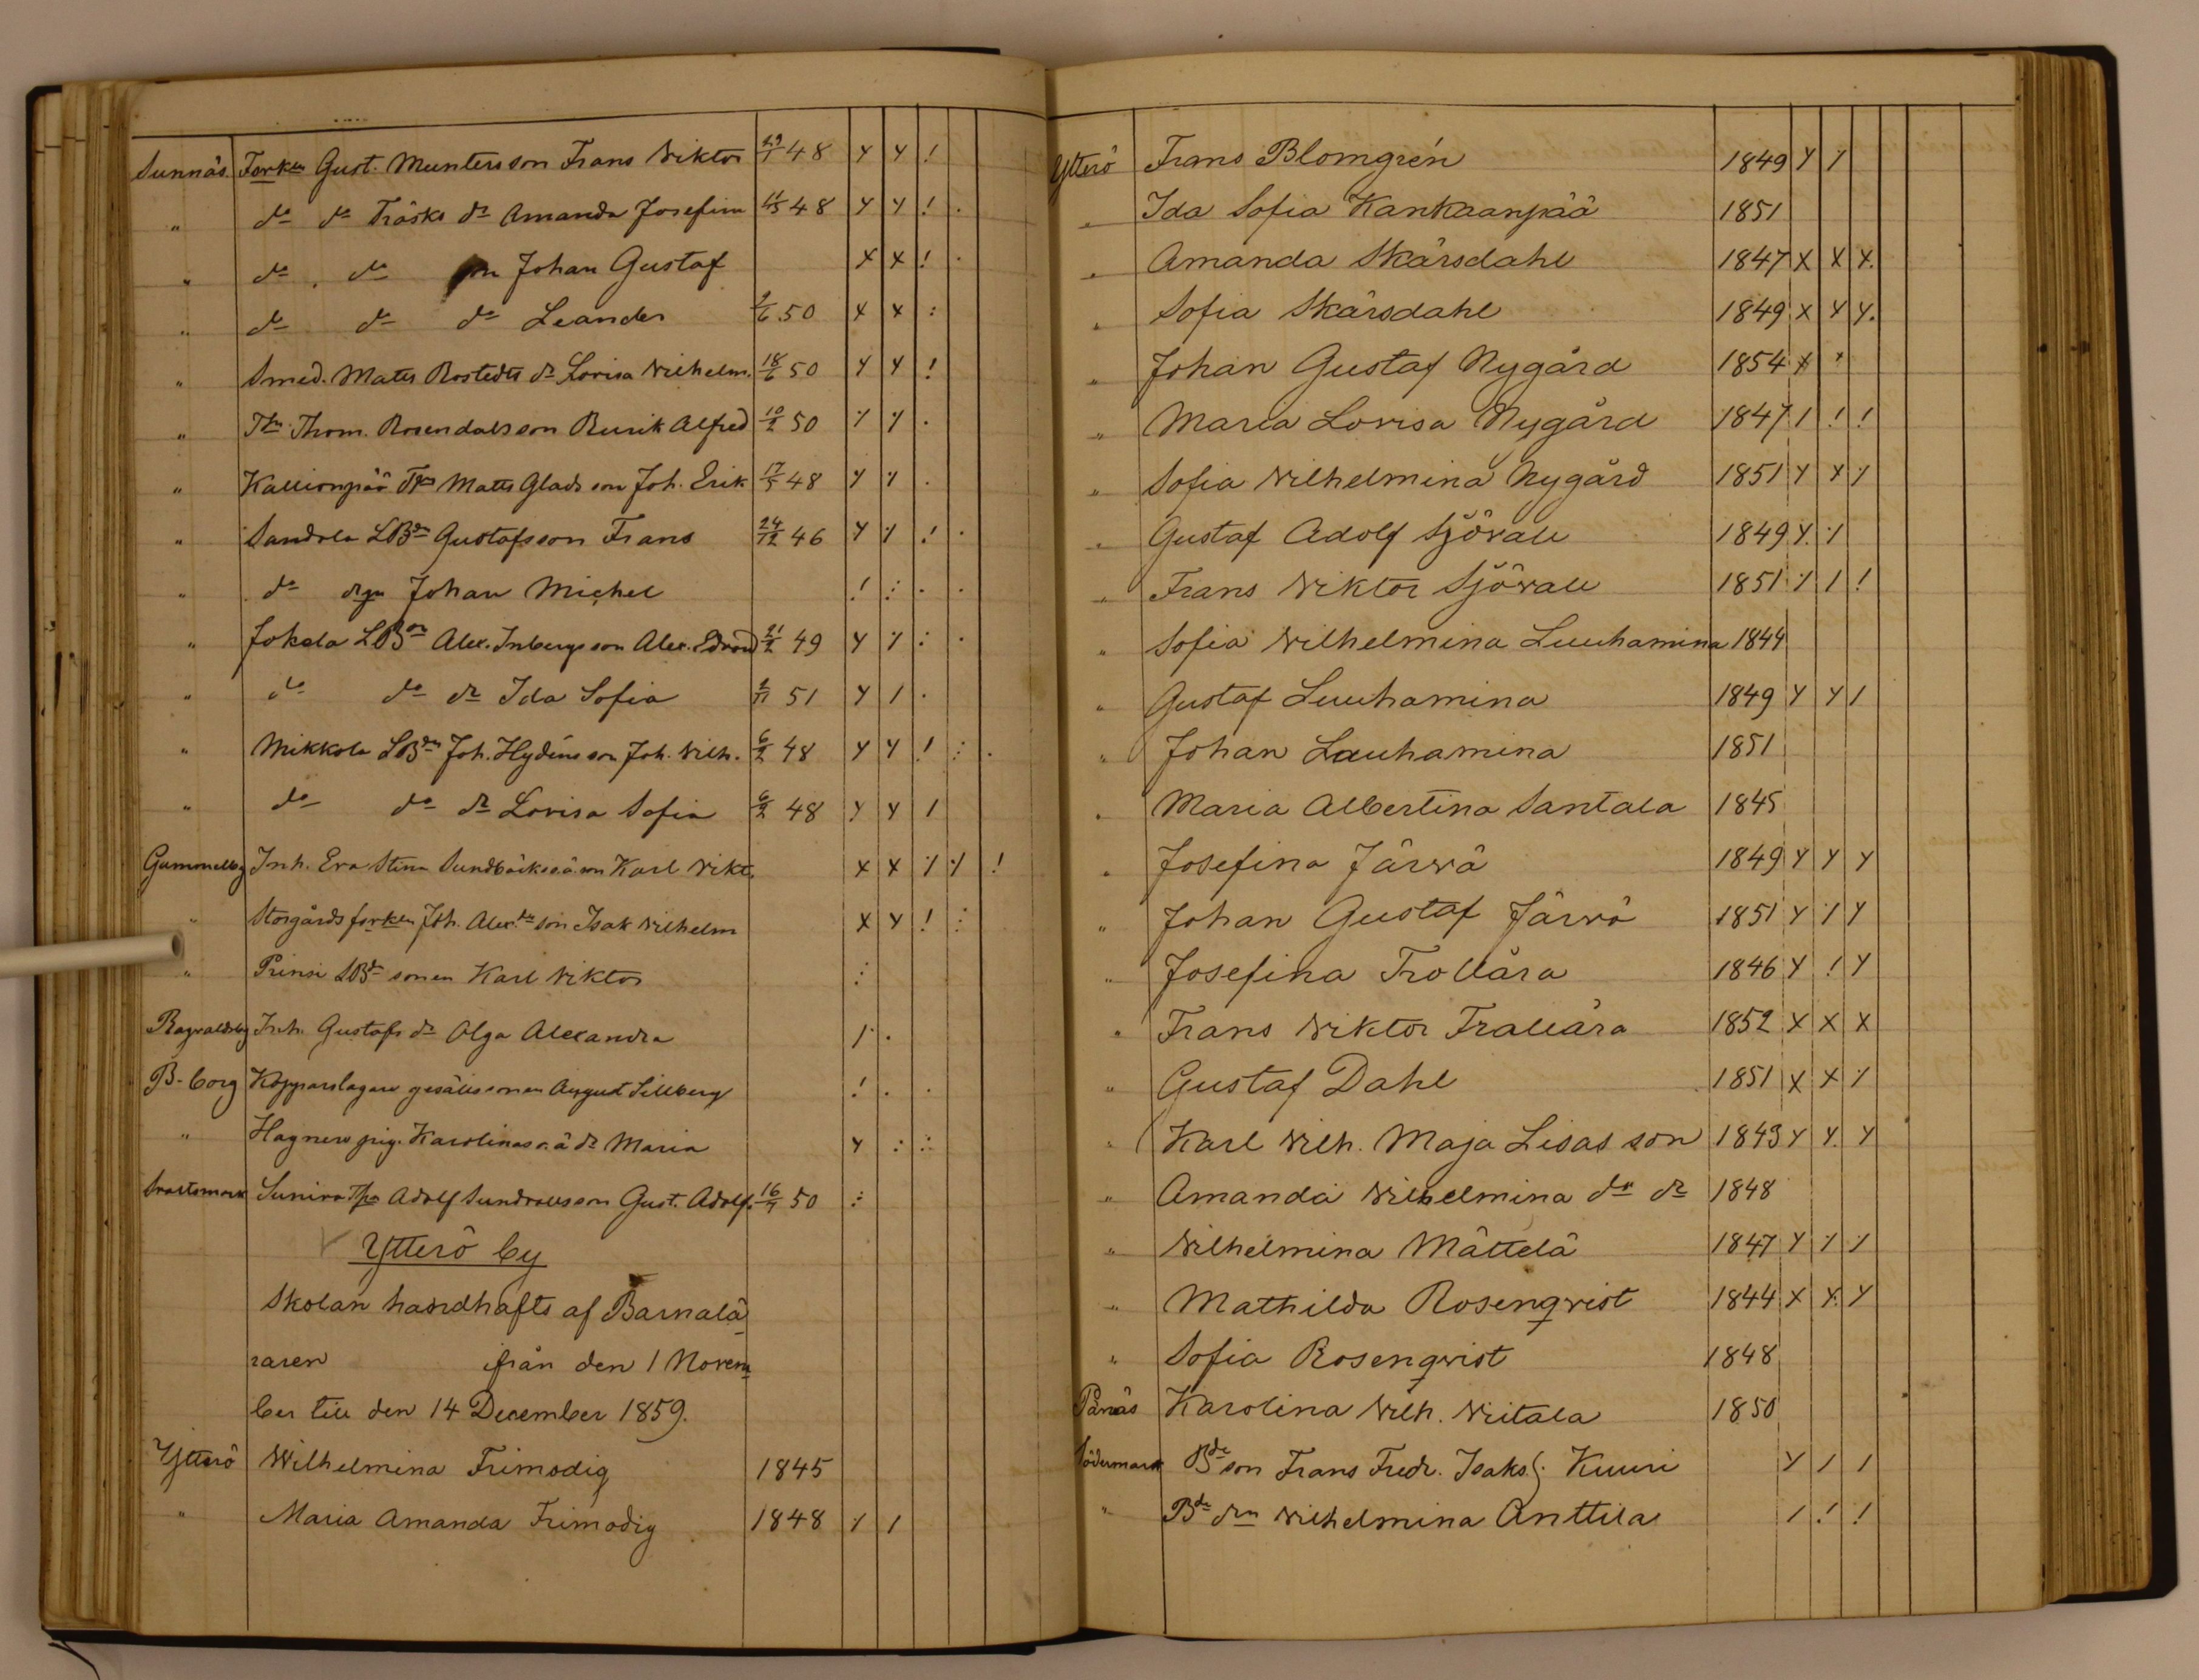 Sunnäs Forkn Gust. Munters son Frans Wiktor 29/1 48 Y Y !
" do do Träsks dr Amanda Josefin 48 Y Y ! .
" do do son Johan Gustaf X X ! .
" do do do Leander 2/6 50 X X :
" Smed. Matts Rostedts dr Lovisa Wilhelm. 18/6 50 Y Y !
" Thom. Rosendals son Rurik Alfred 10/2 50 ٪ ٪ .
" Kallionpää Matts Glads son Joh. Erik 17/5 48 Y ٪ .
" Sandola LBdn Gustafsson Frans 24/12 46 Y ٪ ! .
" do Johan Michel ! : . .
" Jokela LBdn Alex. Inbergs son Alex. Edvard 21/2 49 Y ٪ : .
" do do dr Ida Sofia 2/11 51 Y / .
" Mikkola LBdn Joh. Hydéns son Joh. Wilh. 6/2 48 Y Y ! : .
" do do dr Lovisa Sofia 6/2 48 Y Y /
Gammelby Inh. Eva Stina Sundbäcks o.ä. son Karl Wikt. X X ٪ ٪ !
" Storgårds forkn Joh. Alex. son Isak Wilhelm X Y ! :
" Prinsi LBd sonen Karl Wiktor :
Ragvaldsby Inh. Gustafs dr Olga Alexandra / .
B-borg Kopparslagare gesälls sonen August Sillberg ! . .
" Hagners pig. Karolinas o.ä dr Maria Y : :
Svartsmark Sunira Adolf Sundvalls son Gust. Adolf. 16/7 50 :
Ytterö by
Skolan handhafts af Barnalä
raren ifrån den 1 Novem
ber till den 14 December 1859.
Ytterö Wilhelmina Frimodig 1845
" Maria Amanda Frimodig 1848 ٪ /
Ytterö Frans Blomgrén 1849 Y ٪
" Ida Sofia Kankaanpää 1851
" Amanda Skärsdahl 1847 X X X.
" Sofia Skärsdahl 1849 X Y Y.
" Johan Gustaf Nygård 1854 X
" Maria Lovisa Nygård 1847 / ! !
" Sofia Wilhelmina Nygård 1851 Y X ٪
" Gustaf Adolf Sjövall 1849 Y. ٪
" Frans Wiktor Sjövall 1851 ٪ / !
" Sofia Wilhelmina Luuhamina 1844
" Gustaf Luuhamina 1849 Y Y /
" Johan Lauhamina 1851
" Maria Albertina Santala 1845
" Josefina Järvä 1849 Y Y Y
" Johan Gustaf Järvä 1851 Y ٪ Y
" Josefina Trollära 1846 Y ! Y
" Frans Wiktor Trallära 1852 X X X
" Gustaf Dahl 1851 X X ٪
" Karl Wilh. Maja Lisas son 1843 Y Y. Y
" Amanda Wilhelmina do dr 1848
" Wilhelmina Mättelä 1847 Y ٪ ٪
" Mathilda Rosenqvist 1844 X Y. Y
" Sofia Rosenqvist 1848
Pånäs Karolina Wilh. Wiitala 1850
Södermark Bde son Frans Fredr. Isaks. Kuuri Y / /
" Bde drn Wilhelmina Anttila / ! !